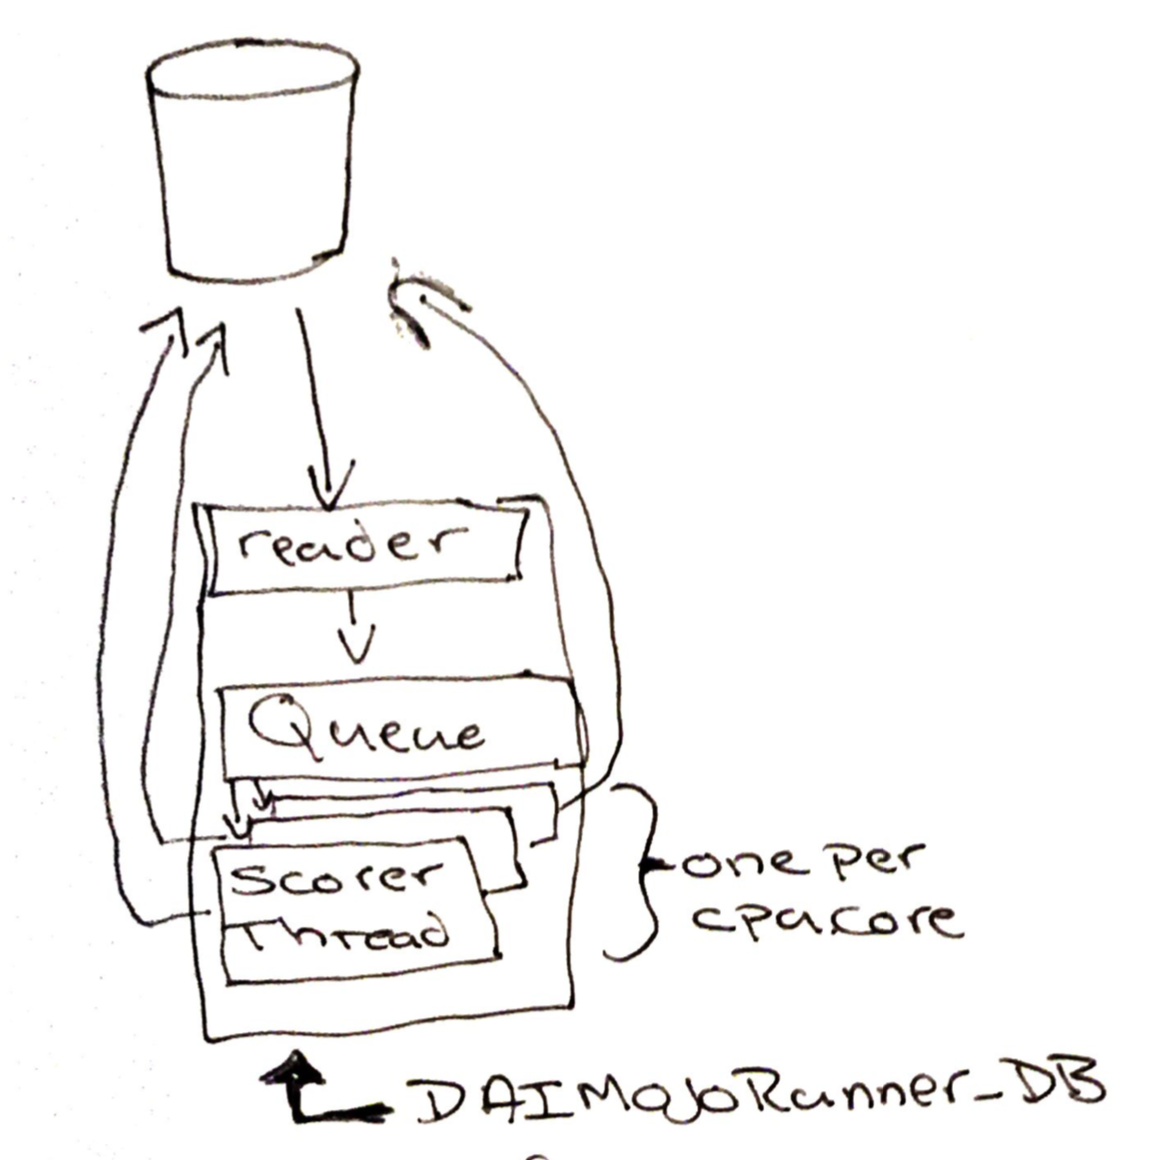 reader
Queue
Scorer
Thread
one per
cpu core
DAIMojoRunner_DB